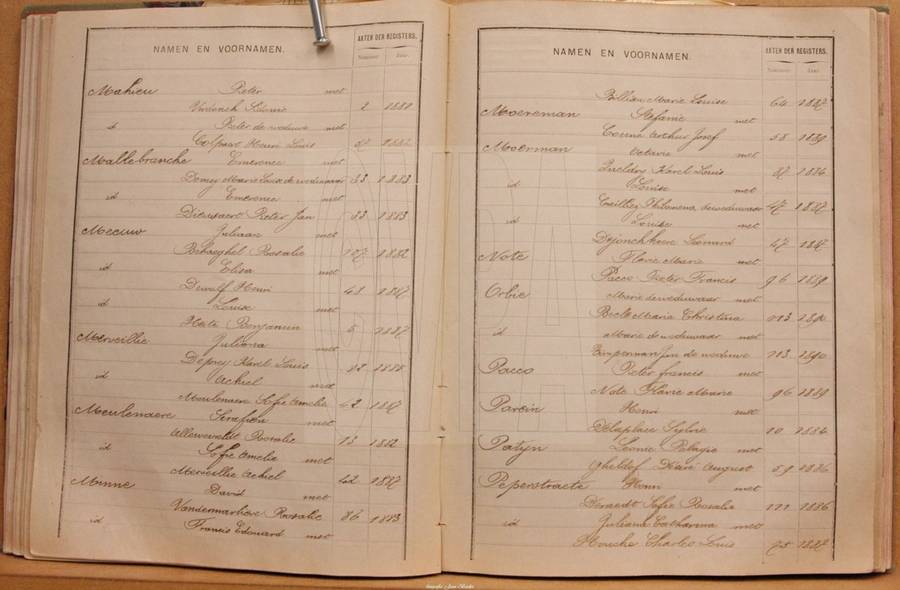 NAMEN EN VOORNAMEN.
AKTEN DER REGISTERS.
Nummer. Jaar.
Mahieu Pieter met
Léonie 2 1881
id Pieter de weduwe met
Colpaert Henri Louis 1882
Mallebranche Emerence met
Marie Louise de weduwaar 33 1883
id Emerence met
Dieusaert Pieter Jan 33 1883
Meeuw Juliaan met
Behaeghel Rosalie 107 1882
id Elisa met
Dewulf Henri 48 1887
id Louise met
Benjamin 5 1887
Merveillie Juliana met
Deprey Karel Louis 42
id Achiel met
Meulenaere Sofie Amelie 42 1887
Meulenaere Serafien met
Allewereldt Rosalie 13 1882
id Sofie Amelia met
Merveillie Achiel 42 1887
Minne David met
Vandermarliere Rosalie 86 1883
id Francis Edouard met
NAMEN EN VOORNAMEN.
AKTEN DER REGISTERS.
Nummer. Jaar.
Billiau Marie Louise 64 1887
Moereman Stefanie met
Arthur Josef 58 1889
Moerman Octavie met
Karel Louis 1886
id Louise met
Philomena deweduwaar 47 1887
id Louise met
Dejonckheere Leonard 47 1887
Note Flavie Marie met
Pacco Pieter Francis 96 1889
Orbie Marie deweduwaar met
Maria Christina 113 1890
id Marie de weduwaar met
Jan de weduwe 113 1890
Pacco Pieter francis met
Note Flavie Marie 96 1889
Parein Henri met
Delaplace Sylvie 10 1886
Patyn Leonie Pelagie met
Gheldof Désiré August 59 1886
Peperstraete Henri met
Deraedt Sofie Rosalie 111 1886
id Juliana Catharina met
Houcke Charles Louis 75 1887